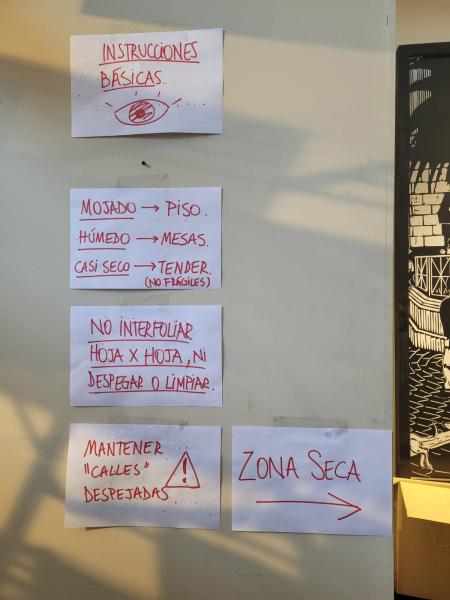 INSTRUCCIONES
BÁSICAS.
MOJADO → PISO.
HÚMEDO → MESAS.
CASI SECO → TENDER.
(NO FRÁGILES)
NO INTERFOLIAR
HOJA X HOJA, NI
DESPEGAR O LIMPIAR.
MANTENER
"CALLES"
DESPEJADAS
ZONA SECA